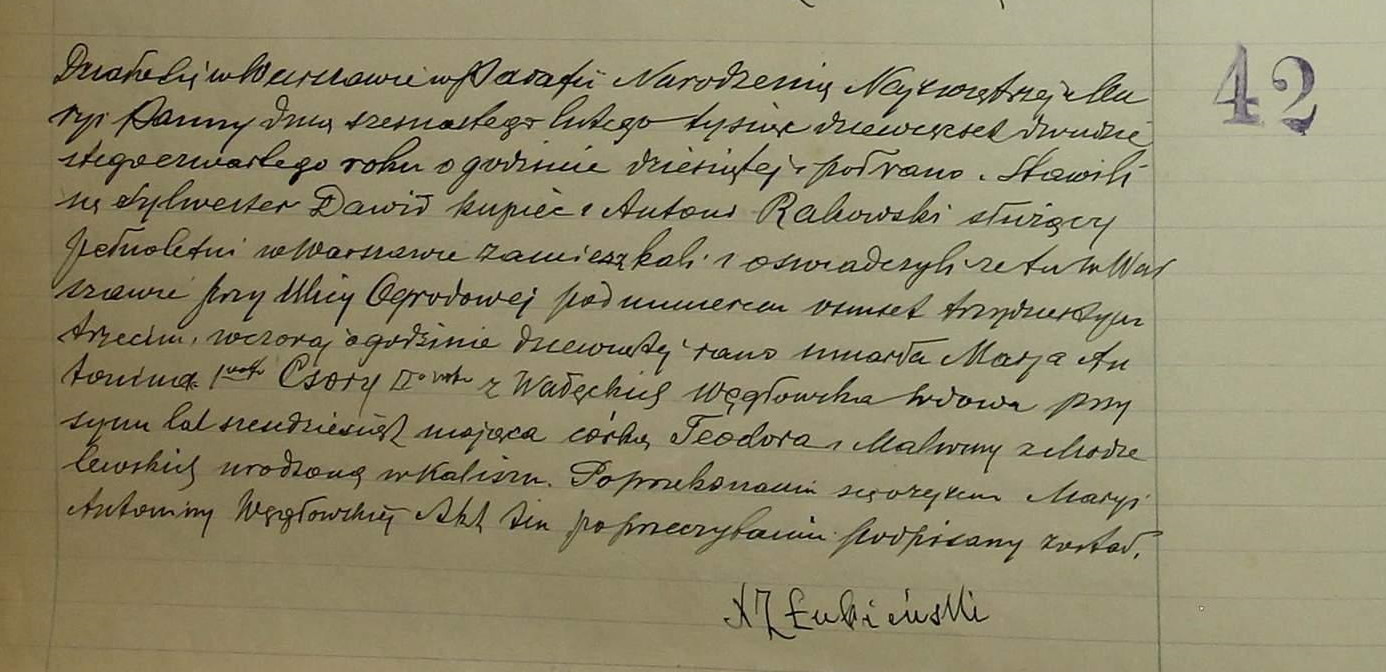 Działo się w Warszawie w Parafii Narodzenia Najświętszej Ma
ryi Panny dnia szesnastego lutego tysiąc dziewięćset dwudzie
stego czwartego roku o godzinie dziesiątej i pół rano. Stawili
się Sylwester Dawid kupiec i Antoni Rakowski służący
pełnoletni w Warszawie zamieszkali i oświadczyli że tu w War
szawie przy Ulicy Ogrodowej pod numerem osiemset trzydziestym
trzecim, wczoraj o godzinie dziewiątej rano umarła Marja An
tonina Csory z Wałęckich Węgłowska wdowa przy
synu lat sześćdziesiąt mająca córka Teodora i Malwiny z Modze
lewskich urodzona w Kaliszu. Po przekonaniu się o zejściu Maryi
Antoniny Węgłowskiej Akt ten po przeczytaniu podpisany został.
X Z Łubieński
42